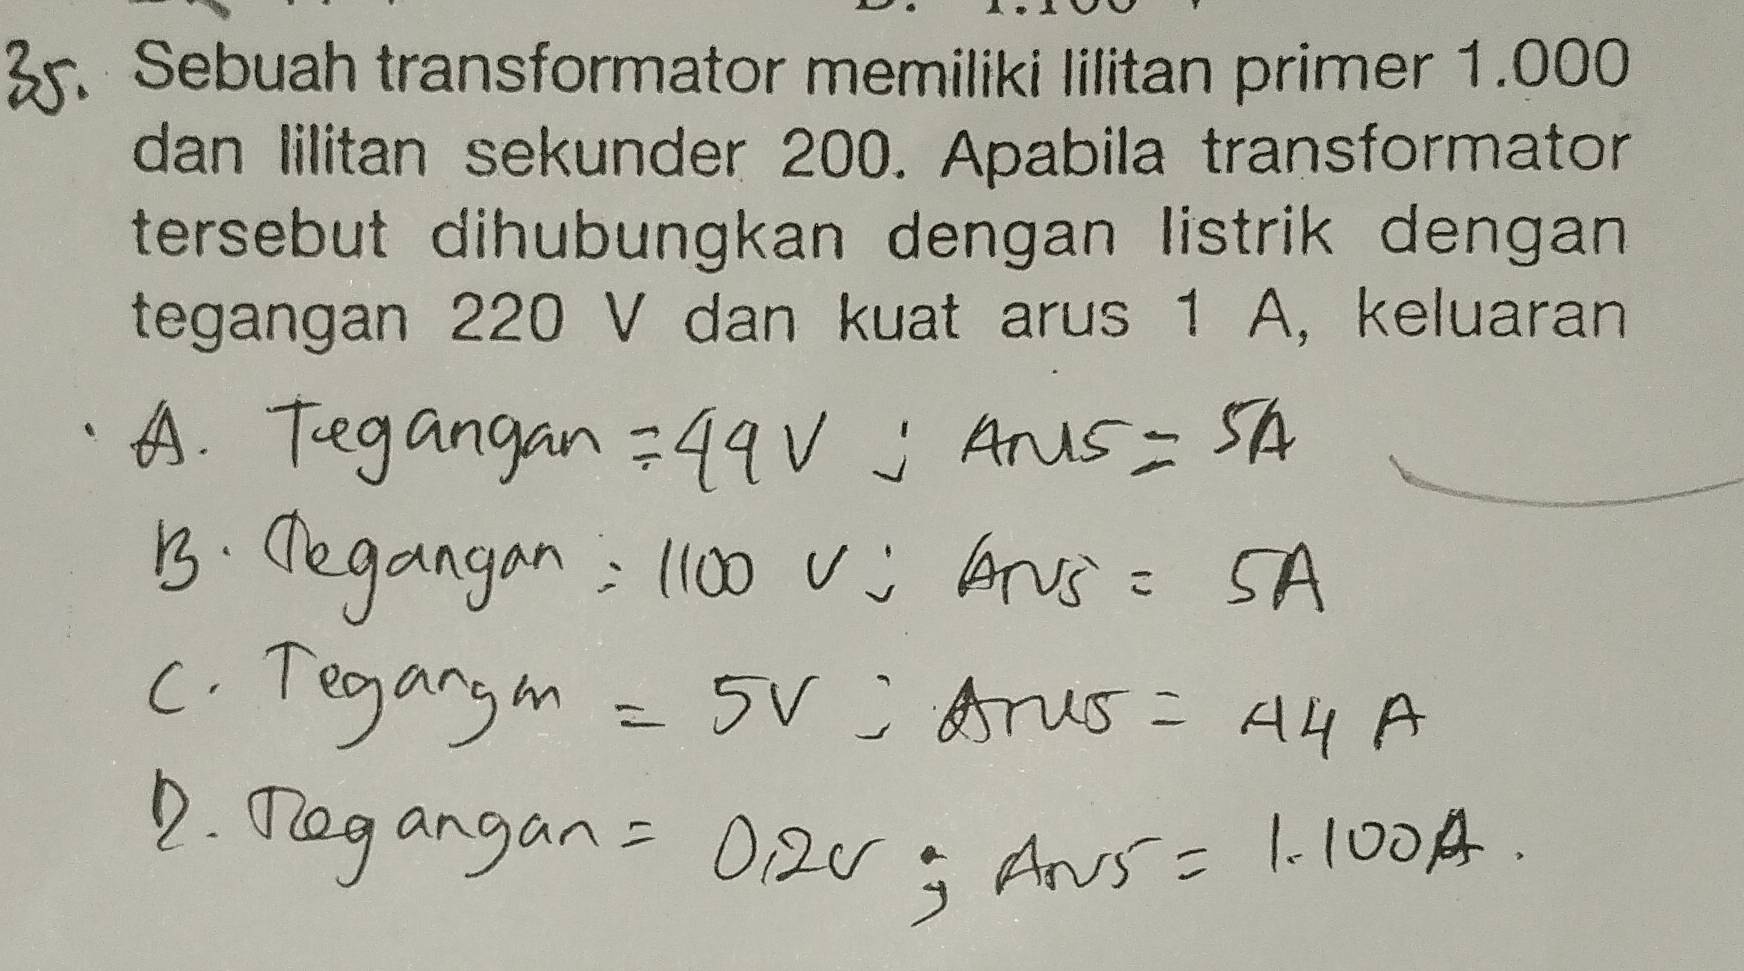 35. Sebuah transformator memiliki lilitan primer 1.000
dan lilitan sekunder 200. Apabila transformator
tersebut dihubungkan dengan listrik dengan
tegangan 220 V dan kuat arus 1 A, keluaran
A. Tegangan = 44 V ; Arus = 5A
B. Tegangan = 1100 V ; Arus = 5A
C. Tegangan = 5V ; Arus = 44 A
D. Tegangan = 0,2V ; Arus = 1.100A.